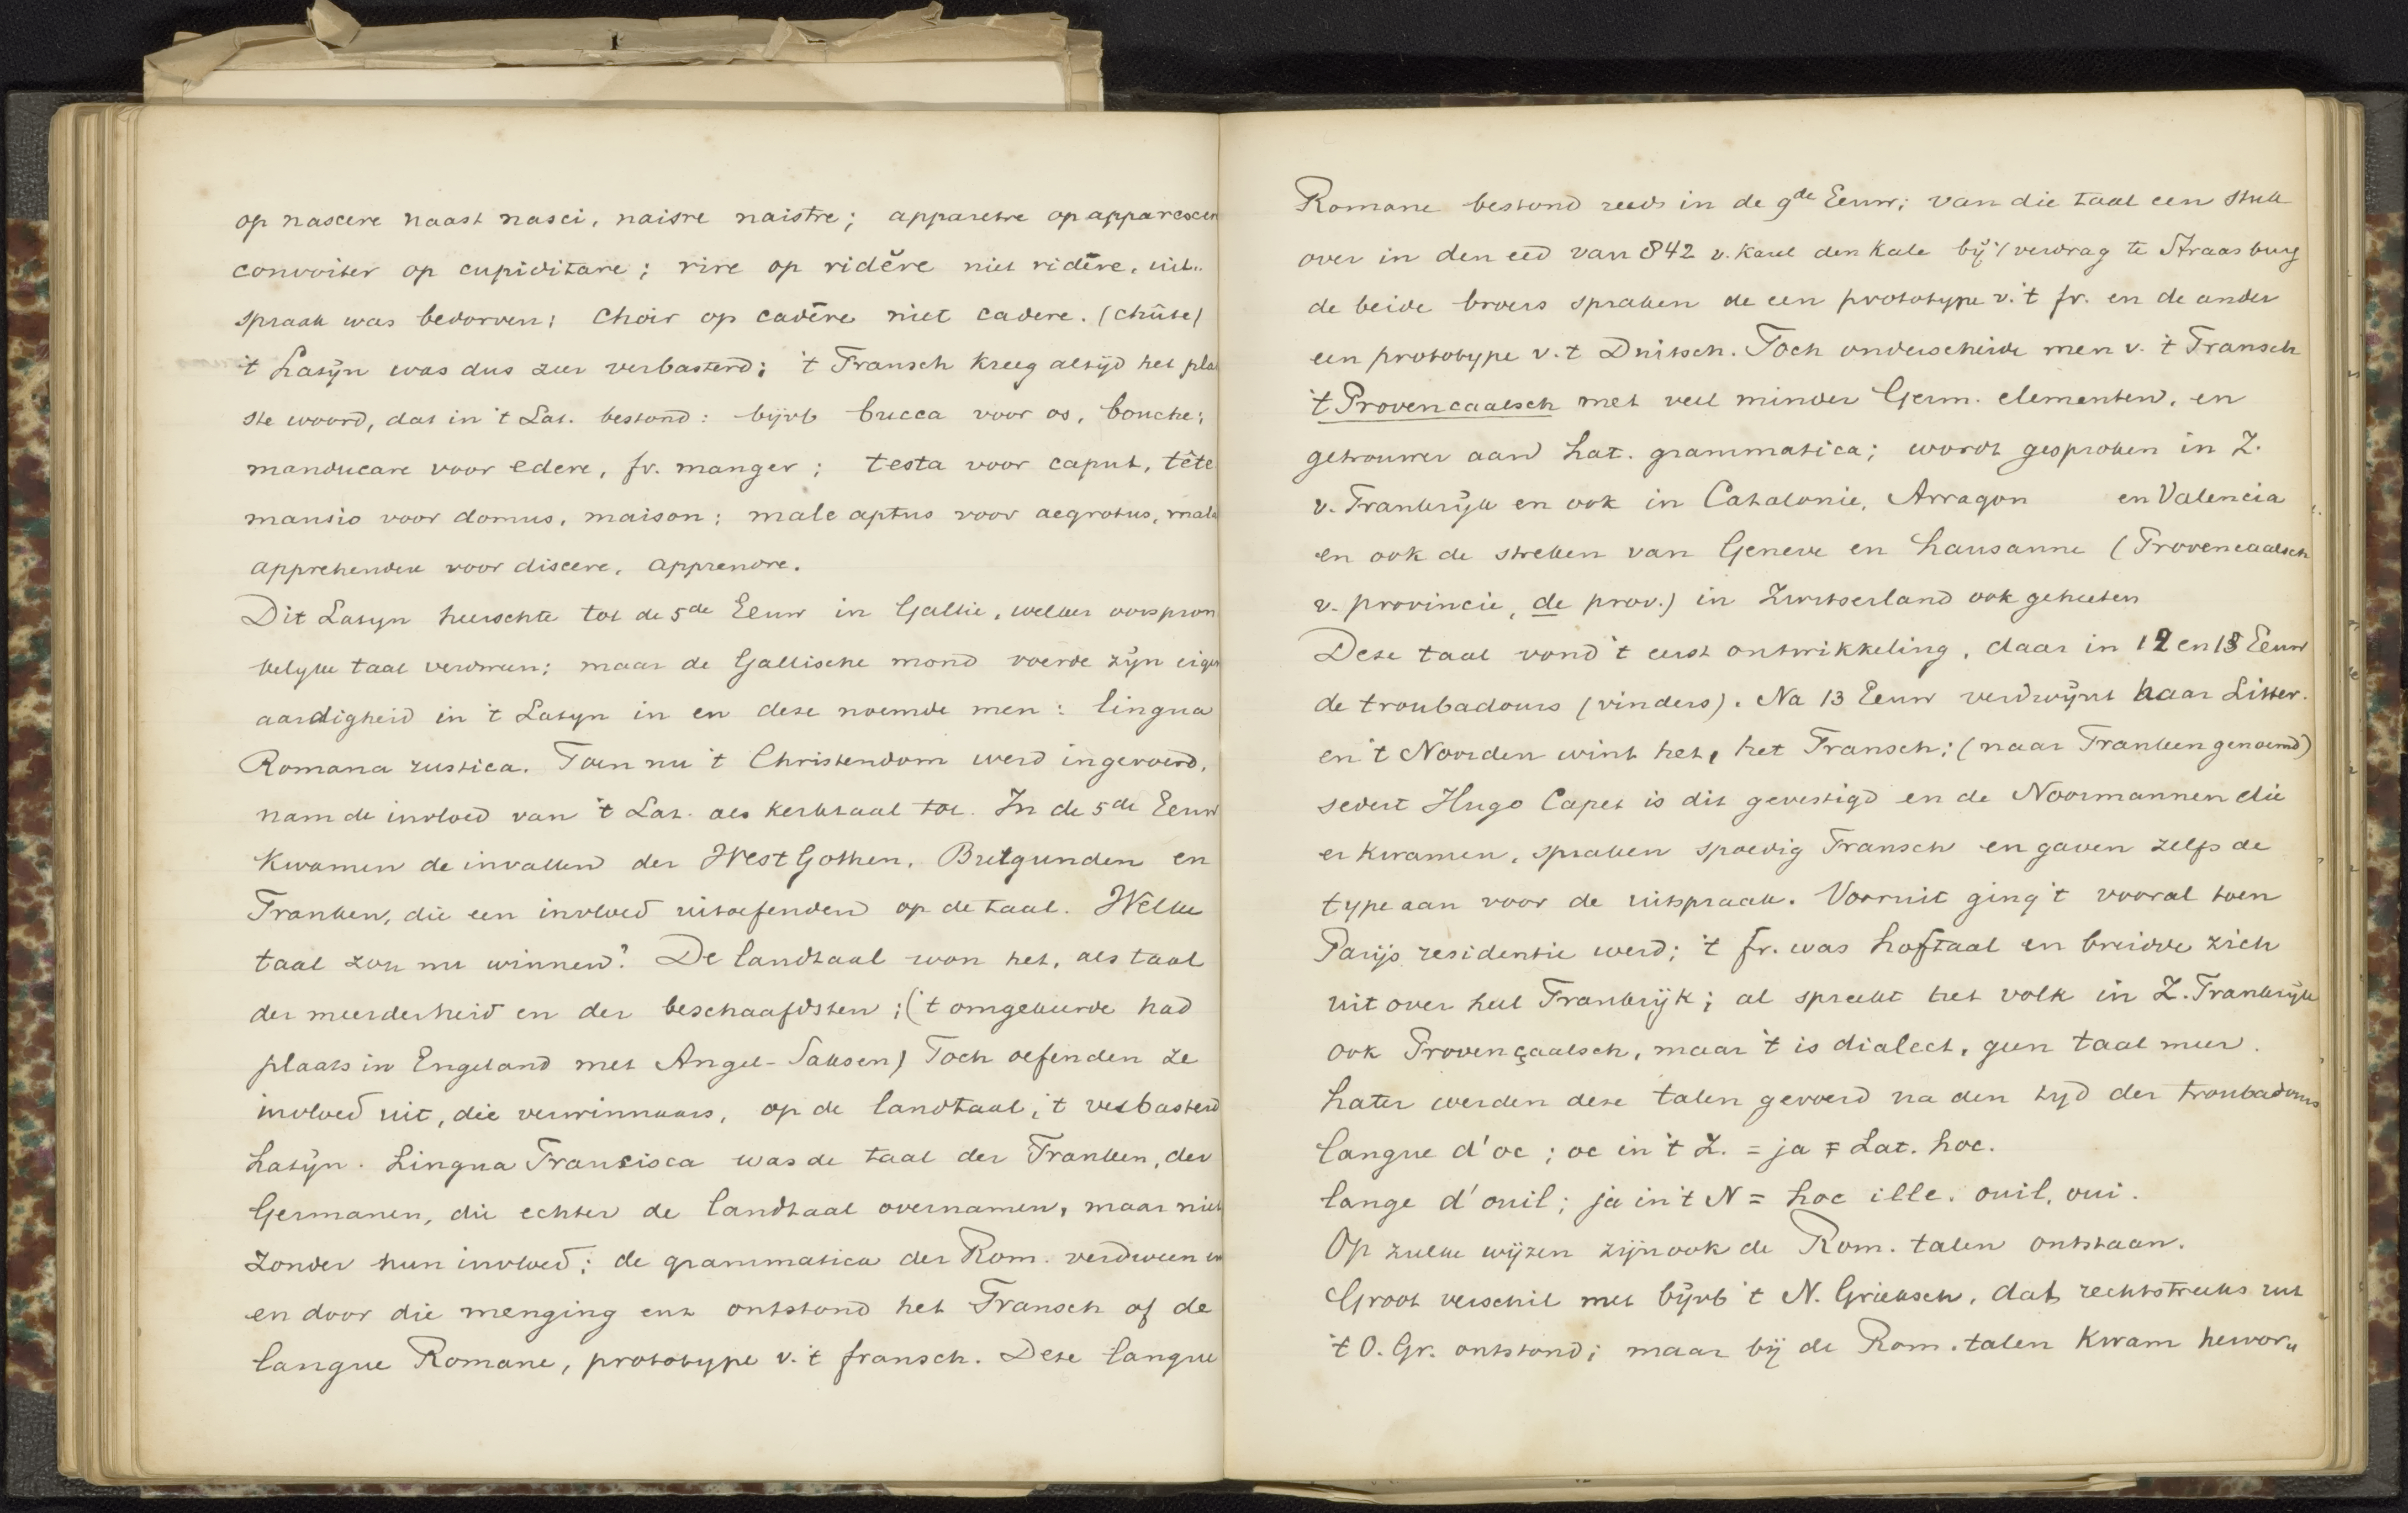 op nascere naast nasci, naisre naistre; apparetre op apparescer
convoiter op cupiditare; rire op ridĕre niet ridēre, uit..
spraak was bedorven; choir op cadēre niet cadere. (chûte)
't Latijn was dus zeer verbasterd; 't Fransch kreeg altijd het pla
ste woord, dat in 't Lat. bestond: bijvb bucca voor os, bouche;
manducare voor edere, fr. manger; testa voor caput, tête
mansio voor domus, maison; male aptus voor aegrotus, mala
apprehendere voor discere, apprendre.
Dit Latyn heerschte tot de 5de Eeuw in Gallie, welker oorspron
kelyke taal verdween; maar de Gallische mond voerde zyn eigen
aardigheid in 't Latyn in en deze noemde men: lingua
Romana rustica. Toen nu 't Christendom werd ingevoerd,
nam de invloed van 't Lat. als kerktaal toe. In de 5de Eeuw
kwamen de invallen der West Gothen, Burgunden en
Franken, die een invloed uitoefenden op de taal. Welke
taal zou nu winnen? De landtaal won het, als taal
der meerderheid en der beschaafdsten; ('t omgekeerde had
plaats in Engeland met Angel-Saksen) Toch oefenden ze
invloed uit, die verwinnaars, op de landtaal, 't verbasterd
Latijn. Lingua Francisca was de taal der Franken, der
Germanen, die echter de landtaal overnamen, maar niet
zonder hun invloed; de grammatica der Rom. verdween en
en door die menging ent ontstond het Fransch of de
langue Romane, prototype v. 't fransch. Deze langue
Romane bestond reeds in de 9de Eeuw; van die taal een stuk
over in den eed van 842 v. Karel den Kale bij 't verdrag te Straasburg
de beide broers spraken de een prototype v. 't fr. en de ander
een prototype v. t Duitsch. Toch onderscheide men v. 't Fransch
't Provencaalsch met veel minder Germ. elementen, en
getrouwer aan Lat. grammatica; wordt gesproken in Z.
v. Frankrijk en ook in Catalonie, Arragon en Valencia
en ook de streken van Geneve en Lausanne (Provencaalsch
v. provincie, de prov.) in Zwitserland ook geheeten
Deze taal vond 't eerst ontwikkeling, daar in 12 en 13 Eeuw
de troubadours (vinders). Na 13 Eeuw verdwijnt haar Litter.
en 't Noorden wint het, het Fransch; (naar Franken genoemd)
sedert Hugo Capet is dit gevestigd en de Noormannen die
er kwamen, spraken spoedig Fransch en gaven zelfs de
type aan voor de uitspraak. Vooruit ging 't vooral toen
Parijs residentie werd; 't fr. was hoftaal en breidde zich
uit over heel Frankrijk; al spreekt het volk in Z. Frankrijk
ook Provençaalsch, maar 't is dialect, geen taal meer.
Later werden deze talen gevoerd na den tyd der troubadours
langue d'oc; oc in 't Z. = ja = Lat. hoc.
lange d'ouil; ja in 't N = hoc ille. ouil, oui.
Op zulke wijzen zijn ook de Rom. talen ontstaan.
Groot verschil met bijvb 't N. Grieksch, dat rechtstreeks uit
't O. Gr. ontstond; maar bij de Rom. talen kwam hewor,,